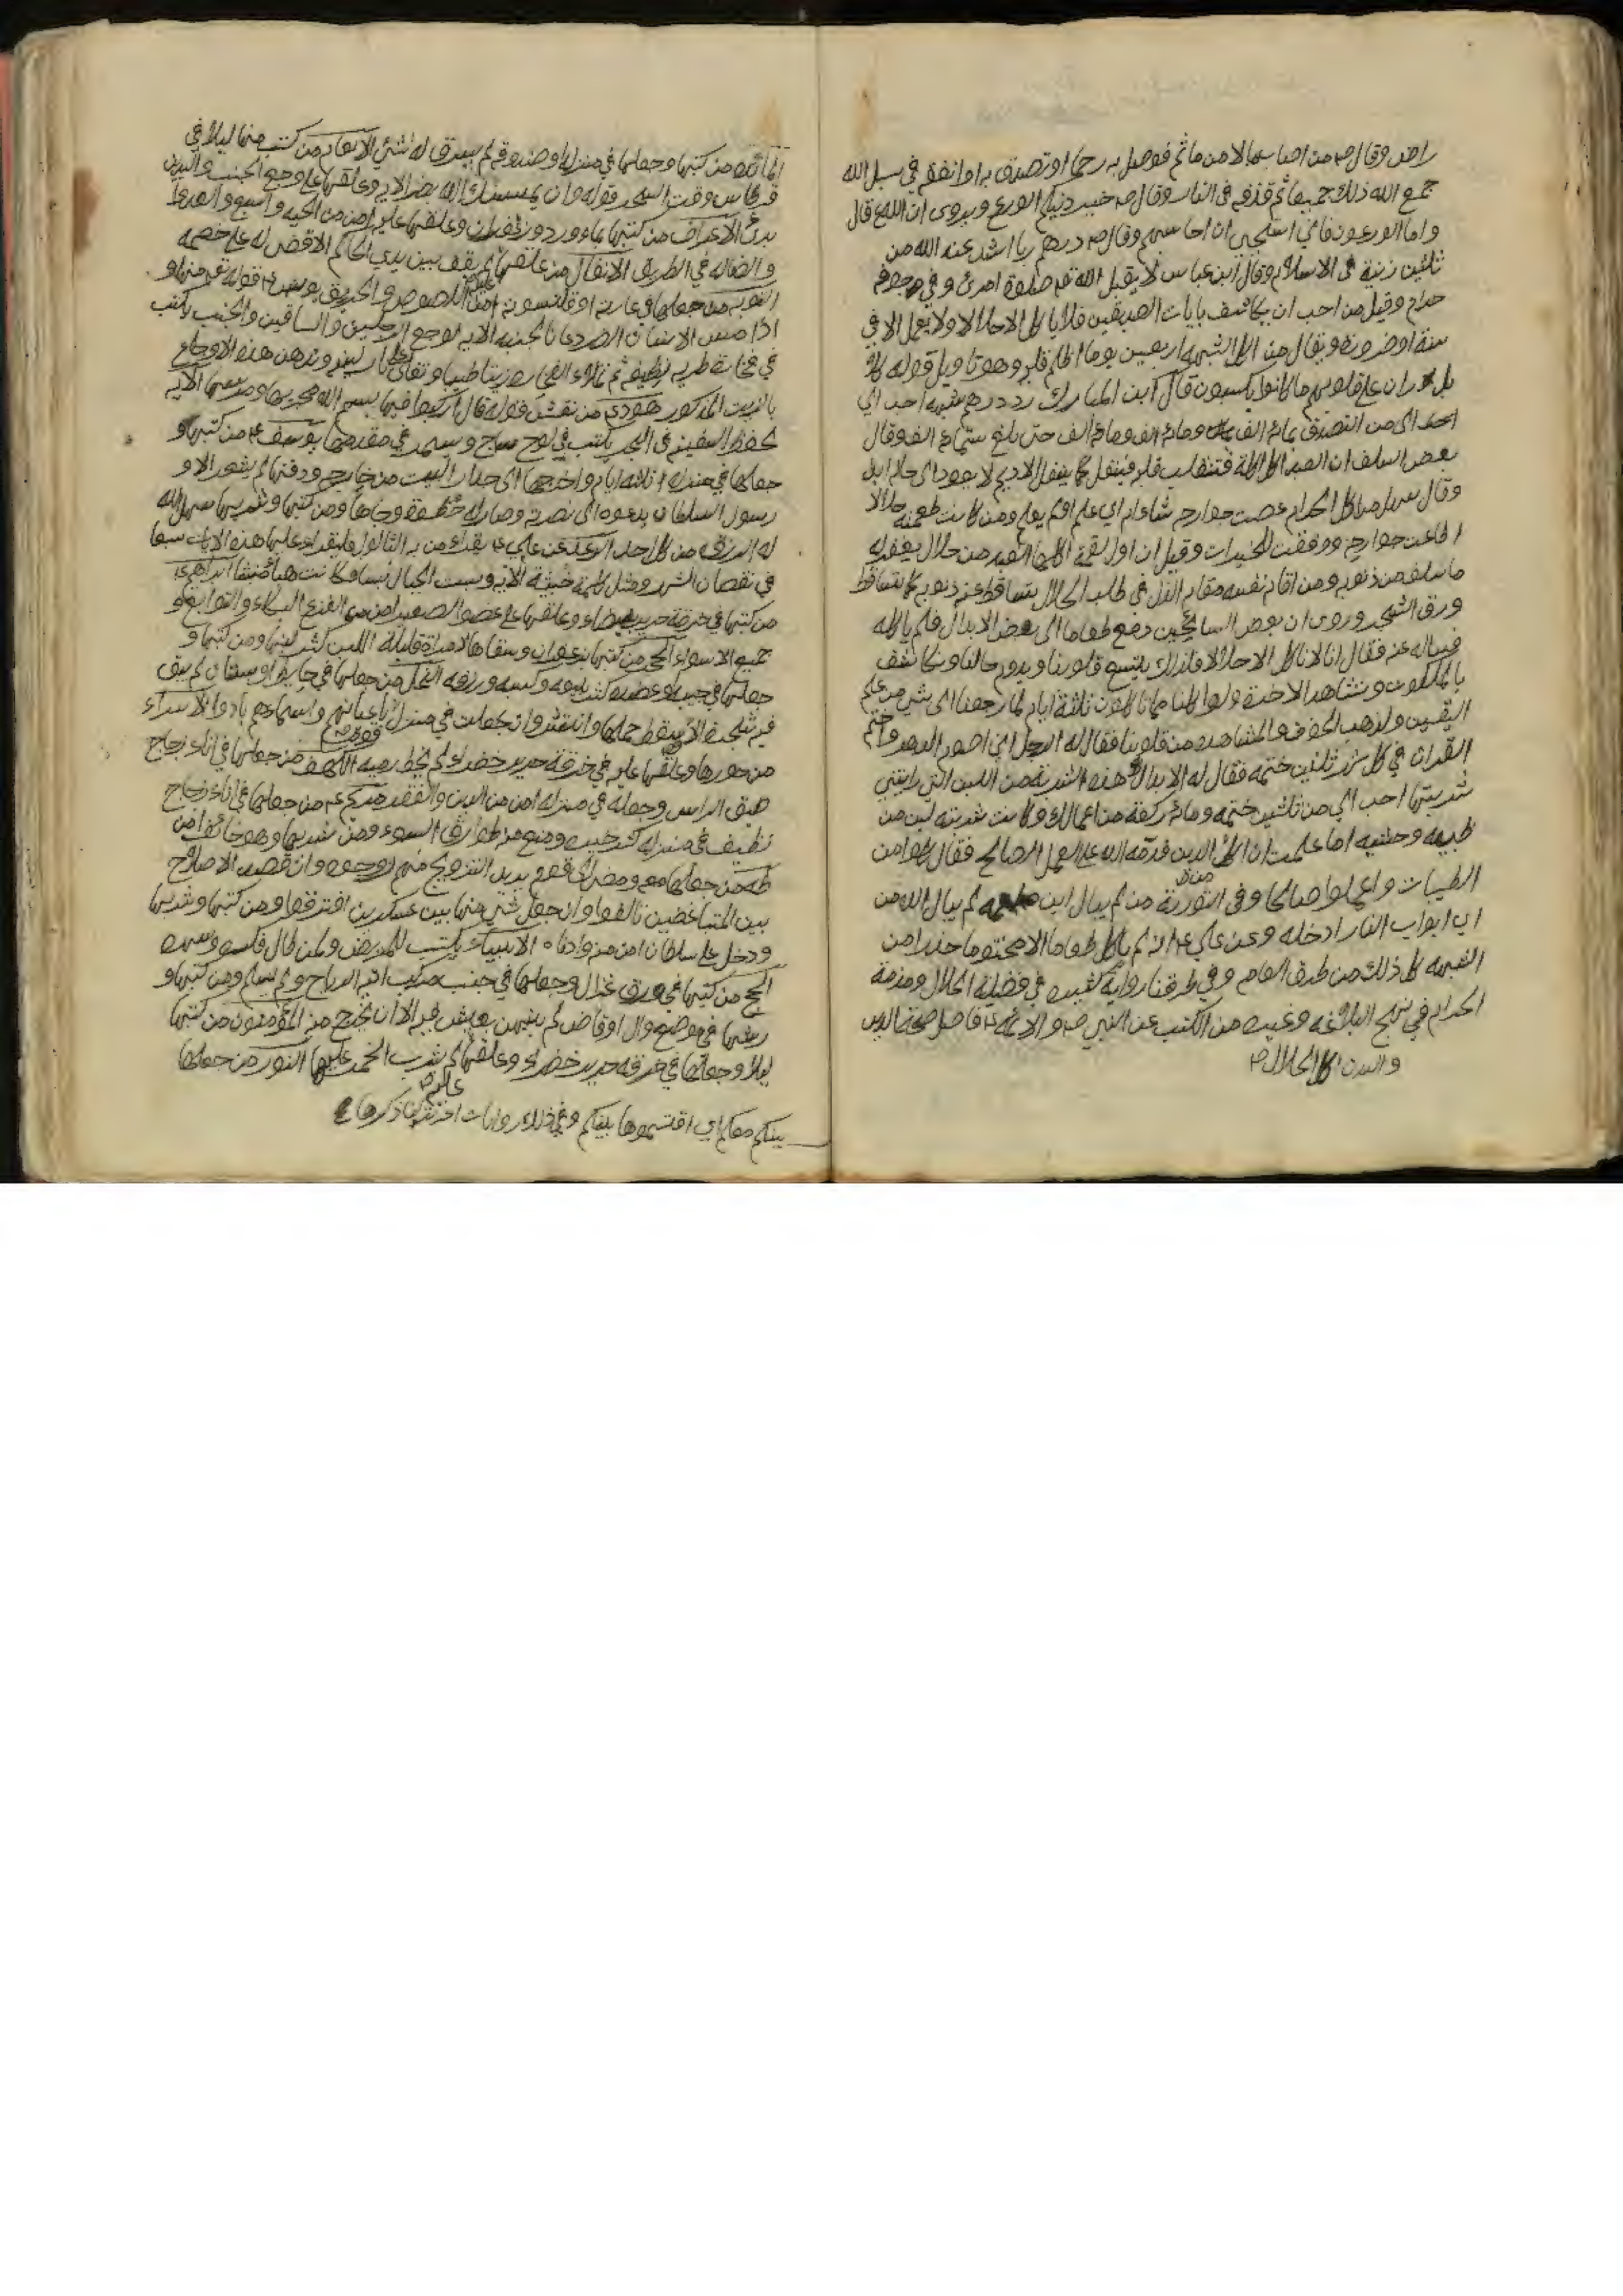 راض وقال ص من اصاب مالا من ماثم فوصل به رحما او تصدق به او انفقه في سبيل الله
جمع الله ذلك جميعا ثم قذفه في النار وقال ص خير دينكم الورع ويروى ان الله ع قال
واما الورعون فاني استحيي ان احاسبهم وقال ص درهم ربا اشد عند الله من
ثلثين زنية في الاسلام وقال ابن عباس لا يقبل الله تع صلوة امرئ وفي جوفه
حرام وقيل من احب ان يكاشف بايات الصديقين فلا ياكل الا حلالا ولا يعمل الا في
سنة او ضرورة ويقال من اكل الشبهة اربعين يوما اظلم قلبه وهو تاويل قوله كلا
بل ران على قلوبهم ما كانوا يكسبون قال ابن المبارك رد درهم شبهة احب الي
من التصدق بمائة الف ومائة الف ومائة الف حتى بلغ ستمائة الف وقال
بعض السلف ان العبد اكل اكلة فتنقلب قلبه فينغل كما ينغل الاديم لا يعود الى حاله ابدا
وقال سهل من اكل الحرام عصت جوارحه شاء ام ابى علم او لم يعلم ومن كانت طعمته حلالا
اطاعت جوارحه ووفقت للخيرات وقيل ان اول لقمة اكلها العبد من حلال يغفر له
ما سلف من ذنوبه ومن اقام نفسه مقام الذل في طلب الحلال يتساقط عنه ذنوبه كما يتساقط
ورق الشجر وروى ان بعض السائحين دفع طعاما الى بعض الابدال فلم ياكله
فساله عنه فقال انا لا ناكل الا حلالا فلذلك يتسع قلوبنا ويدوم حالنا ونكاشف
بالملكوت ونشاهد الاخرة ولو اكلنا مما تاكلون ثلثة ايام لما رجعنا الى شي من علم
اليقين ولذهب الخوف والمشاهده من قلوبنا فقال له الرجل اني اصوم الدهر واختم
القران في كل شهر ثلثين ختمه فقال له الابدال هذه الشربة من اللبن التي رايتني
شربتها احب الي من ثلثين ختمه ومائة ركعة من اعمالك وكانت شربته لبن من
ظبيه وحشيه اما علمت ان اكل الدين قدمه الله على العمل الصالح فقال كلوا من
الطيبات واعملوا صالحا وفي التورية من لم يبال اين مطعمه لم يبال الله من
اي ابواب النار ادخله وعن علي ع انه لم ياكل طعاما الا مختوما حذرا من
الشبهه كل ذلك من طرق العام وفي طرقنا رواية كثيره في فضيلة الحلال ومذمة
الحرام في نهج البلاغه وغيره من الكتب عن النبي ص والائمه ع فاصل صحة الدين
والبدن اكل الحلال
المائده من كتبها وجعلها في منزله او صندوقه لم يسرق له شئ الانعام من كتب منها ليلا في
قرطاس وقت السحر قوله وان يمسسك الله بضر الايه وعلقها على وجع الجنب واليدين
برئ الاعراف من كتبها بماء ورد وزعفران وعلقها عليه امن من الحيه والسبع والعدوا
والضاله في الطريق الانفال من علقها لم يقف بين يدي الحاكم الا قضى له على خصمه
التوبه من جعلها في عمامته او قلنسوته امن اللصوص والحريق يونس ع قوله تع منها و
اذا مس الانسان الضر دعانا لجنبه الايه لوجع الرجلين والساقين والجنب يكتب
في نظيفه ثم تملاء زيتا طيبا وتغلى على نار لينه ويدهن هذه الاوجاع
بالزيت المذكور هود ع من نقش قوله قال اركبوا فيها بسم الله مجريها ومرسيها الايه
لحفظ السفينه في البحر يكتب في لوح ساج ويسمر في مقدمها يوسف ع من كتبها و
جعلها في منزله ثلاثه ايام واخرجها الى جدار البيت من خارجه ودفنها لم يشعر الا و
رسول السلطان يدعوه الى نصرته وصار له حظوة وجاها ومن كتبها وشربها سهل الله
له الرزق من كل احد الرعد عن علي ع يقراء من به الثالول فليقراء عليها هذه الايات سبعا
في نقصان الشهر ومثل كلمة خبيثة الايه وبست الجبال بسا فكانت هباء منبثا ابراهيم ع
من كتبها في خرقة حرير بيضاء وعلقها على عضد الصغير امن من الفزع البكاء والتوابع و
جميع الاسواء الحجر من كتبها بزعفران وسقاها لامراة قليلة اللبن كثر لبنها ومن كتبها و
جعلها في جيبه او عضده كثر بيعه وكسبه ورزقه النحل من جعلها في حايط او بستان لم يبق
فيه شجرة الا سقط حملها وانتثر وان جعلت في منزل
من علقها عليه في خرقة حرير خضراء لم يخط رميه الكهف من جعلها في اناء زجاج
ضيق الراس وجعله في منزله امن من الدين والفقر مريم ع من جعلها في اناء زجاج
نظيف في منزله كثر خيره ومنع من طوارق السوء ومن شربها وهو خائف امن
طه من جعلها معه ومضى الى قوم يريد التزويج منهم زوجوه وان قصد الاصلاح
بين المتباغضين تالفوا وان جعل شئ منها بين عسكرين افترقوا ومن كتبها وشربها
ودخل على سلطان امن منه وادناه الانبياء يكتب للمريض ولمن طال فكره وسهره
الحج من كتبها في رق غزال وجعلها في جنب مركب اتته الرياح ولم يسلم ومن كتبها و
رشها في موضع وال او قاض لم يتهن بعيش فيه الا ان يخرج منه المؤمنون من كتبها
ليلا وجعلها في خرقه حرير خضراء وعلقها لم يشرب الخمر النور من جعلها